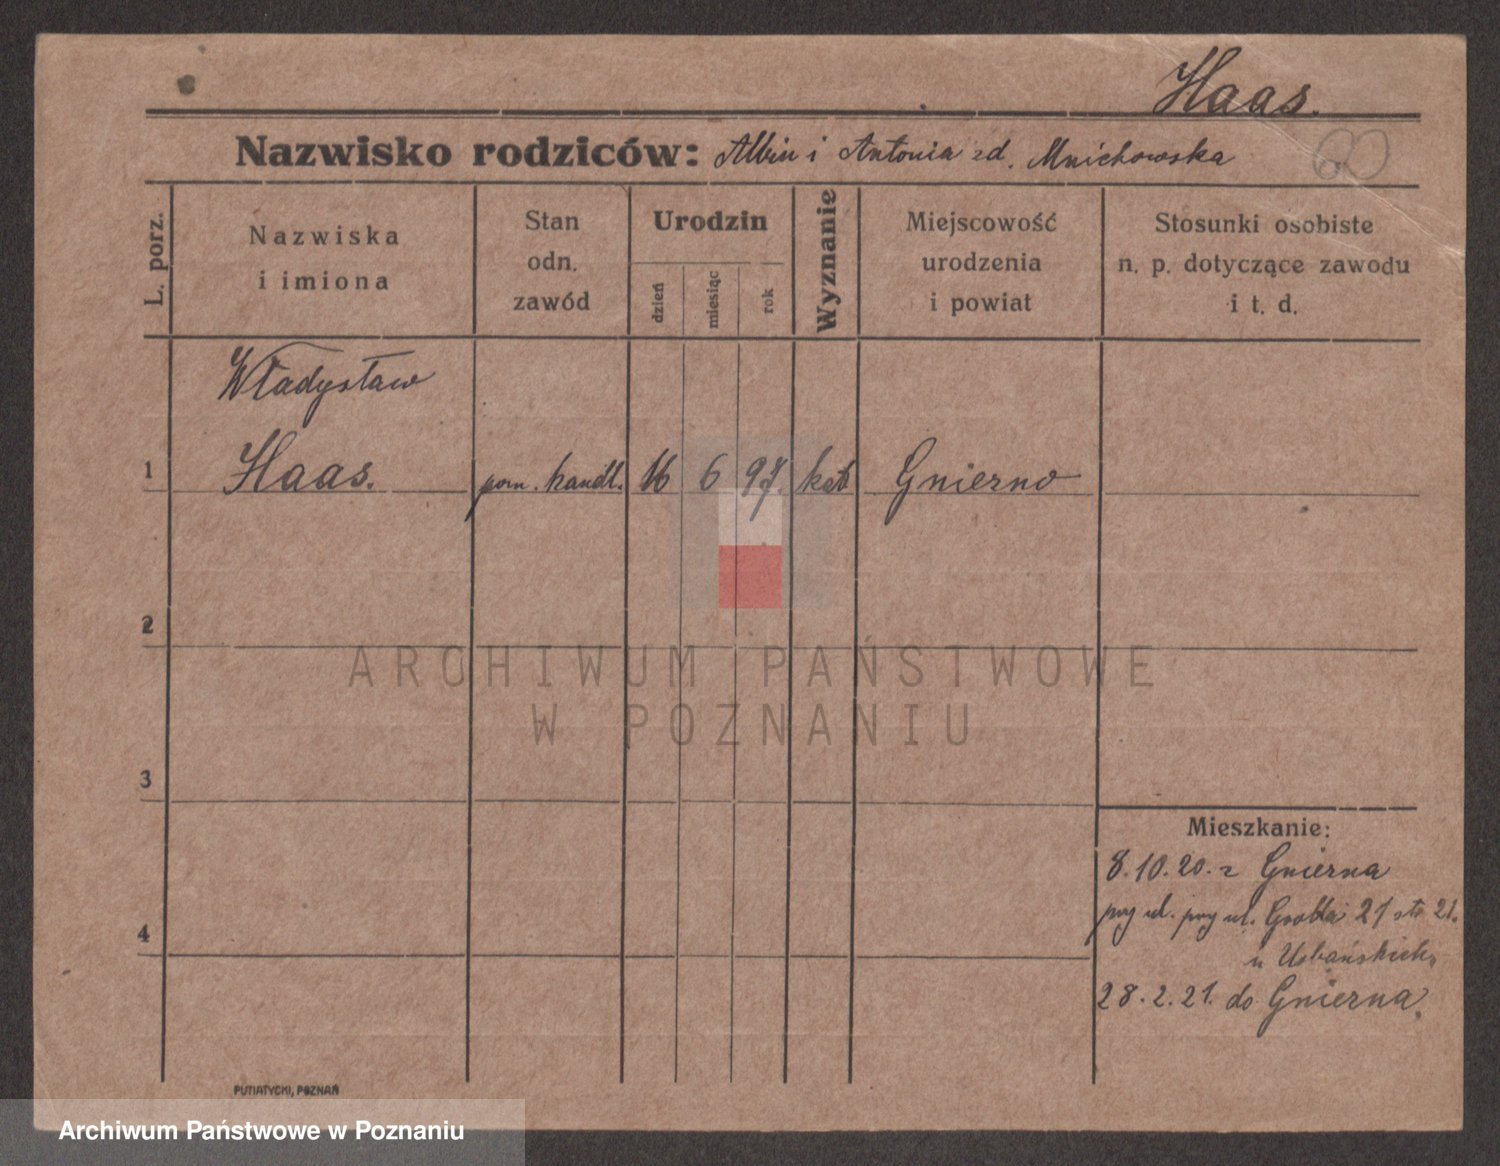 Haas.
Nazwisko rodziców: Albin i Antonia zd. Mnichowska
L. porz.
Nazwiska
i imiona
Stan
odn.
zawód
Urodzin
dzień
miesiąc
rok
Wyznanie
Miejscowość
urodzenia
i powiat
Stosunki osobiste
n. p. dotyczące zawodu
i t. d.
Władysław
1 Haas. pom. handl. 16 6 97. kat Gnierno
2
ARCHIWUM PAŃSTWOWE
W POZNANIU
3
Mieszkanie:
8.10.20. z Gnierna
przy ul. Grobla 21
4
u Urbańskich
28.2.21. do Gnierna.
PUTIATYCKI, POZNAŃ
Archiwum Państwowe w Poznaniu